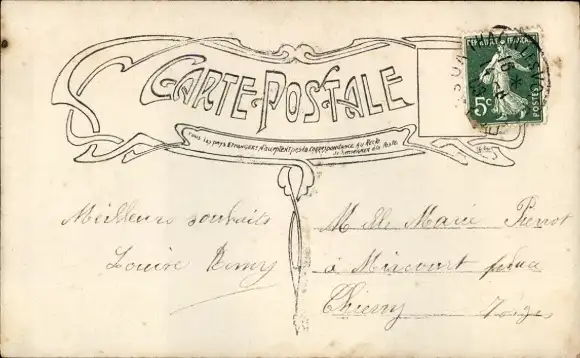 CARTE POSTALE
TOUS LES PAYS ETRANGERS N'ACCEPTENT PAS LA CORRESPONDANCE AU RECTO
SE RENSEIGNER À LA POSTE
5c
POSTES
Meilleurs souhaits
Louise Remy
Melle Marie Pierrot
à Mirecourt
Thierry Vosges